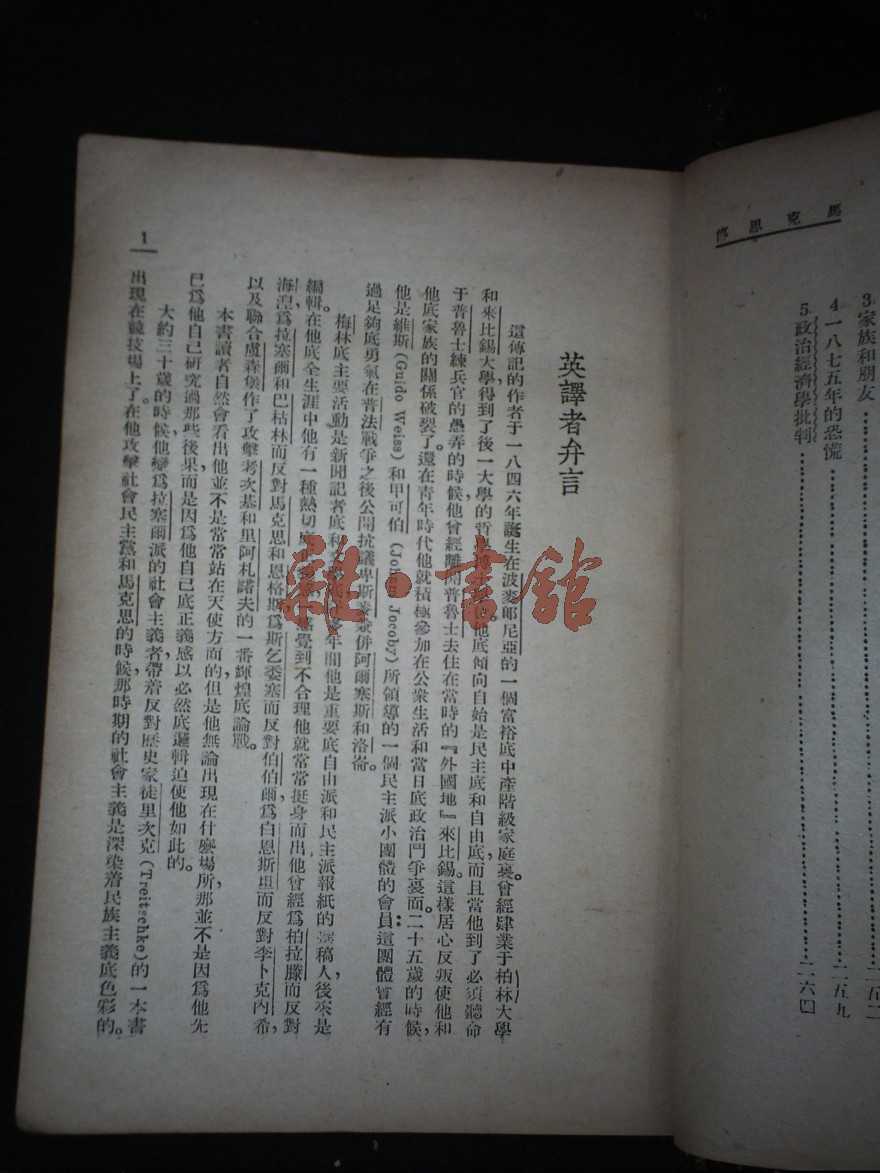 馬克思傳
3. 家族和朋友
4. 一八七五年的恐慌 二五九
5. 政治經濟學批判 二六四
英譯者弁言
這傳記的作者于一八四六年誕生在波麥郞尼亞的一個富裕底中產階級家庭裏。曾經肄業于柏林大學
和來比錫大學,得到了後一大學的哲學博士 他底傾向自始是民主底和自由底,而且當他到了必須聽命
于普魯士練兵官的愚弄的時候,他曾經離開普魯士去住在當時的『外國地』來比錫。這樣居心反叛使他和
他底家族的關係破裂了。還在靑年時代他就積極參加在公衆生活和當日底政治鬥爭裏面。二十五歲的時候,
他是維斯(Guido Weiss)和甲可伯(Johan Jocoby)所領導的一個民主派小團體的會員;這團體曾經有
過足夠底勇氣在普法戰爭之後公開抗議卑斯麥 併阿爾塞斯和洛崙。
梅林底主要活動是新聞記者底和 多年間他是重要底自由派和民主派報紙的撰稿人,後來是
編輯。在他底全生涯中他有一種熱切底 感覺到不合理他就常常挺身而出。他曾經爲柏拉滕而反對
海湼,爲拉塞爾和巴枯林而反對馬克思和恩格斯,爲斯乞委塞而反對伯伯爾,爲白恩斯坦而反對李卜克內希,
以及聯合盧森堡作了攻擊考次基和里阿札諾夫的一番輝煌底論戰。
本書讀者自然會看出他並不是常常站在天使方面的,但是他無論出現在什麼場所,那並不是因爲他先
已爲他自己研究過那些後果,而是因爲他自己底正義感以必然底邏輯迫使他如此的。
大約三十歲的時候,他變爲拉塞爾派的社會主義者,帶着反對歷史家徒里次克(Treitschke)的一本書
出現在競技場上了。在他攻擊社會民主黨和馬克思的時候,那時期的社會主義是深染着民族主義底色彩的。
1
雜·書館